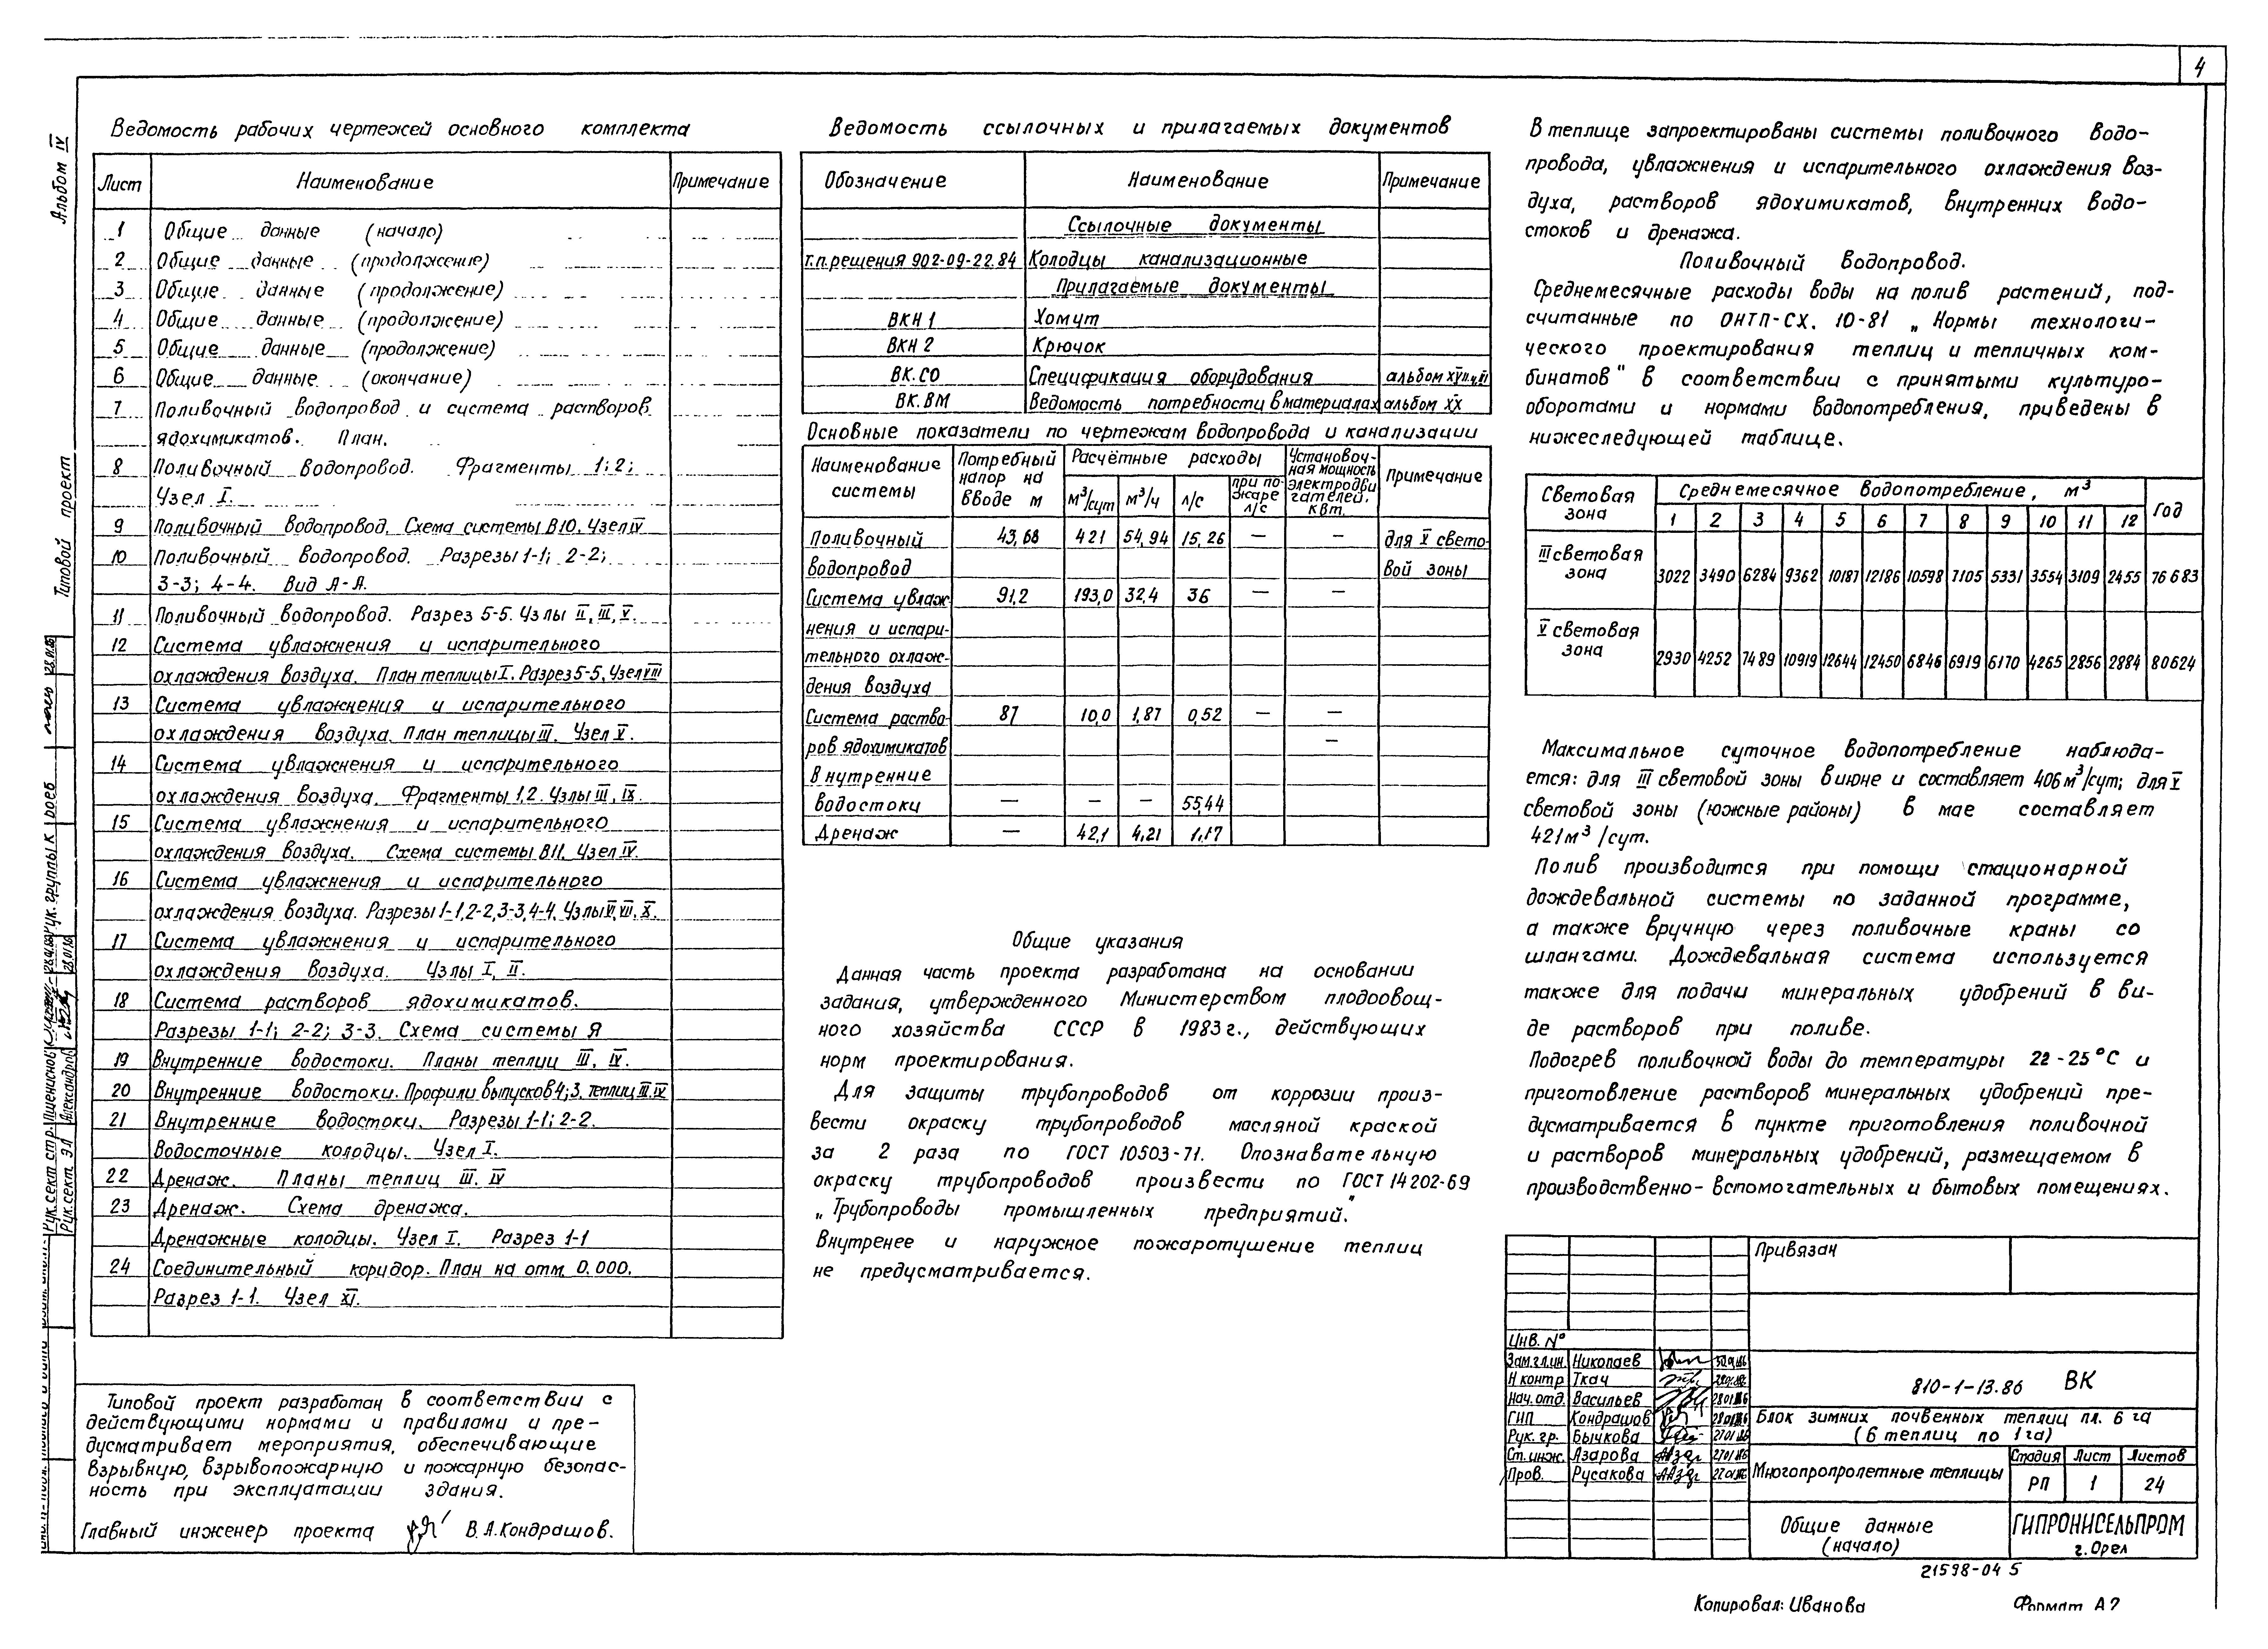 4
Альбом IV
Типовой проект
Ведомость рабочих чертежей основного комплекта
Лист Наименование Примечание
1 Общие данные (начало)
2 Общие данные (продолжение)
3 Общие данные (продолжение)
4 Общие данные (продолжение)
5 Общие данные (продолжение)
6 Общие данные (окончание)
7 Поливочный водопровод и система растворов
ядохимикатов. План.
8 Поливочный водопровод. Фрагменты 1; 2;
Узел I.
9 Поливочный водопровод. Схема системы В10. Узел IV
10 Поливочный водопровод. Разрезы 1-1; 2-2;
3-3; 4-4. Вид А-А.
11 Поливочный водопровод. Разрез 5-5. Узлы II, III, V.
12 Система увлажнения и испарительного
охлаждения воздуха. План теплицы I. Разрез 5-5, Узел VIII
13 Система увлажнения и испарительного
охлаждения воздуха. План теплицы III. Узел V.
14 Система увлажнения и испарительного
охлаждения воздуха. Фрагменты 1,2. Узлы III, IX.
15 Система увлажнения и испарительного
охлаждения воздуха. Схема системы В11. Узел IV.
16 Система увлажнения и испарительного
охлаждения воздуха. Разрезы 1-1, 2-2, 3-3, 4-4. Узлы VI, VII, X.
17 Система увлажнения и испарительного
охлаждения воздуха. Узлы I, II.
18 Система растворов ядохимикатов.
Разрезы 1-1; 2-2; 3-3. Схема системы Я
19 Внутренние водостоки. Планы теплиц III, IV.
20 Внутренние водостоки. Профили выпусков 4; 3. теплиц III. IV
21 Внутренние водостоки. Разрезы 1-1; 2-2.
Водосточные колодцы. Узел I.
22 Дренаж. Планы теплиц III. IV
23 Дренаж. Схема дренажа.
Дренажные колодцы. Узел I. Разрез 1-1
24 Соединительный коридор. План на отм. 0.000.
Разрез 1-1. Узел XI.
Типовой проект разработан в соответствии с
действующими нормами и правилами и пре-
дусматривает мероприятия, обеспечивающие
взрывную, взрывопожарную и пожарную безопас-
ность при эксплуатации здания.
Главный инженер проекта В.А.Кондрашов.
Ведомость ссылочных и прилагаемых документов
Обозначение Наименование Примечание
Ссылочные документы
т.п.решения 902-09-22.84 Колодцы канализационные
Прилагаемые документы
ВКН 1 Хомут
ВКН 2 Крючок
ВК.СО Спецификация оборудования альбом
ВК.ВМ Ведомость потребности в материалах альбом XX
Основные показатели по чертежам водопровода и канализации
Наименование системы Потребный напор на вводе м Расчётные расходы Установоч-ная мощность электродви гателей, квт. Примечание
м³/сут м³/ч л/с при по-жаре л/с
Поливочный 43,68 421 54,94 15,26 — — для V свето-
водопровод вой зоны
Система увлаж- 91,2 193,0 32,4 36 — —
нения и испари-
тельного охлаж-
дения воздуха
Система раство- 87 10,0 1,87 0,52 — —
ров ядохимикатов —
Внутренние
водостоки — — — 5544
Дренаж — 42,1 4,21 1,17
Общие указания
Данная часть проекта разработана на основании
задания, утвержденного Министерством плодоовощ-
ного хозяйства СССР в 1983г., действующих
норм проектирования.
Для защиты трубопроводов от коррозии произ-
вести окраску трубопроводов масляной краской
за 2 раза по ГОСТ 10503-71. Опознавательную
окраску трубопроводов произвести по ГОСТ 14202-69
„Трубопроводы промышленных предприятий."
Внутренее и наружное пожаротушение теплиц
не предусматривается.
В теплице запроектированы системы поливочного водо-
провода, увлажнения и испарительного охлаждения воз-
духа, растворов ядохимикатов, внутренних водо-
стоков и дренажа.
Поливочный водопровод.
Среднемесячные расходы воды на полив растений, под-
считанные по ОНТП-СХ. 10-81 „Нормы технологи-
ческого проектирования теплиц и тепличных ком-
бинатов" в соответствии с принятыми культуро-
оборотами и нормами водопотребления, приведены в
нижеследующей таблице.
Световая зона Среднемесячное водопотребление, м³ Год
1 2 3 4 5 6 7 8 9 10 11 12
III световая зона 3022 3490 6284 9362 10187 12186 10598 7105 5331 3554 3109 2455 76683
V световая зона 2930 4252 7489 10919 12644 12450 6846 6919 6170 4265 2856 2884 80624
Максимальное суточное водопотребление наблюда-
ется: для III световой зоны в июне и составляет 406 м³/сут; для V
световой зоны (южные районы) в мае составляет
421м³/сут.
Полив производится при помощи стационарной
дождевальной системы по заданной программе,
а также вручную через поливочные краны со
шлангами. Дождевальная система используется
также для подачи минеральных удобрений в ви-
де растворов при поливе.
Подогрев поливочной воды до температуры 22-25°С и
приготовление растворов минеральных удобрений пре-
дусматривается в пункте приготовления поливочной
и растворов минеральных удобрений, размещаемом в
производственно-вспомогательных и бытовых помещениях.
Привязан
Инв. №
Зам.гл.ин. Николаев
Н контр Ткач
Нач.отд. Васильев 28.01.86
ГИП Кондрашов 28.01.86
Рук. гр. Бычкова 27.01.86
Ст.инж. Азарова 27.01.86
Пров. Русакова 27.01.86
810-1-13.86 ВК
Блок зимних почвенных теплиц пл. 6 га
(6 теплиц по 1га)
Многопропролетные теплицы
Стадия Лист Листов
РП 1 24
Общие данные
(начало)
ГИПРОНИСЕЛЬПРОМ
г. Орел
21598-04 5
Копировал: Иванова Формат А2
Рук.сект стр. Пшениснов
Рук.сект. ЭЛ Александров 28.01.86
Рук. группы К